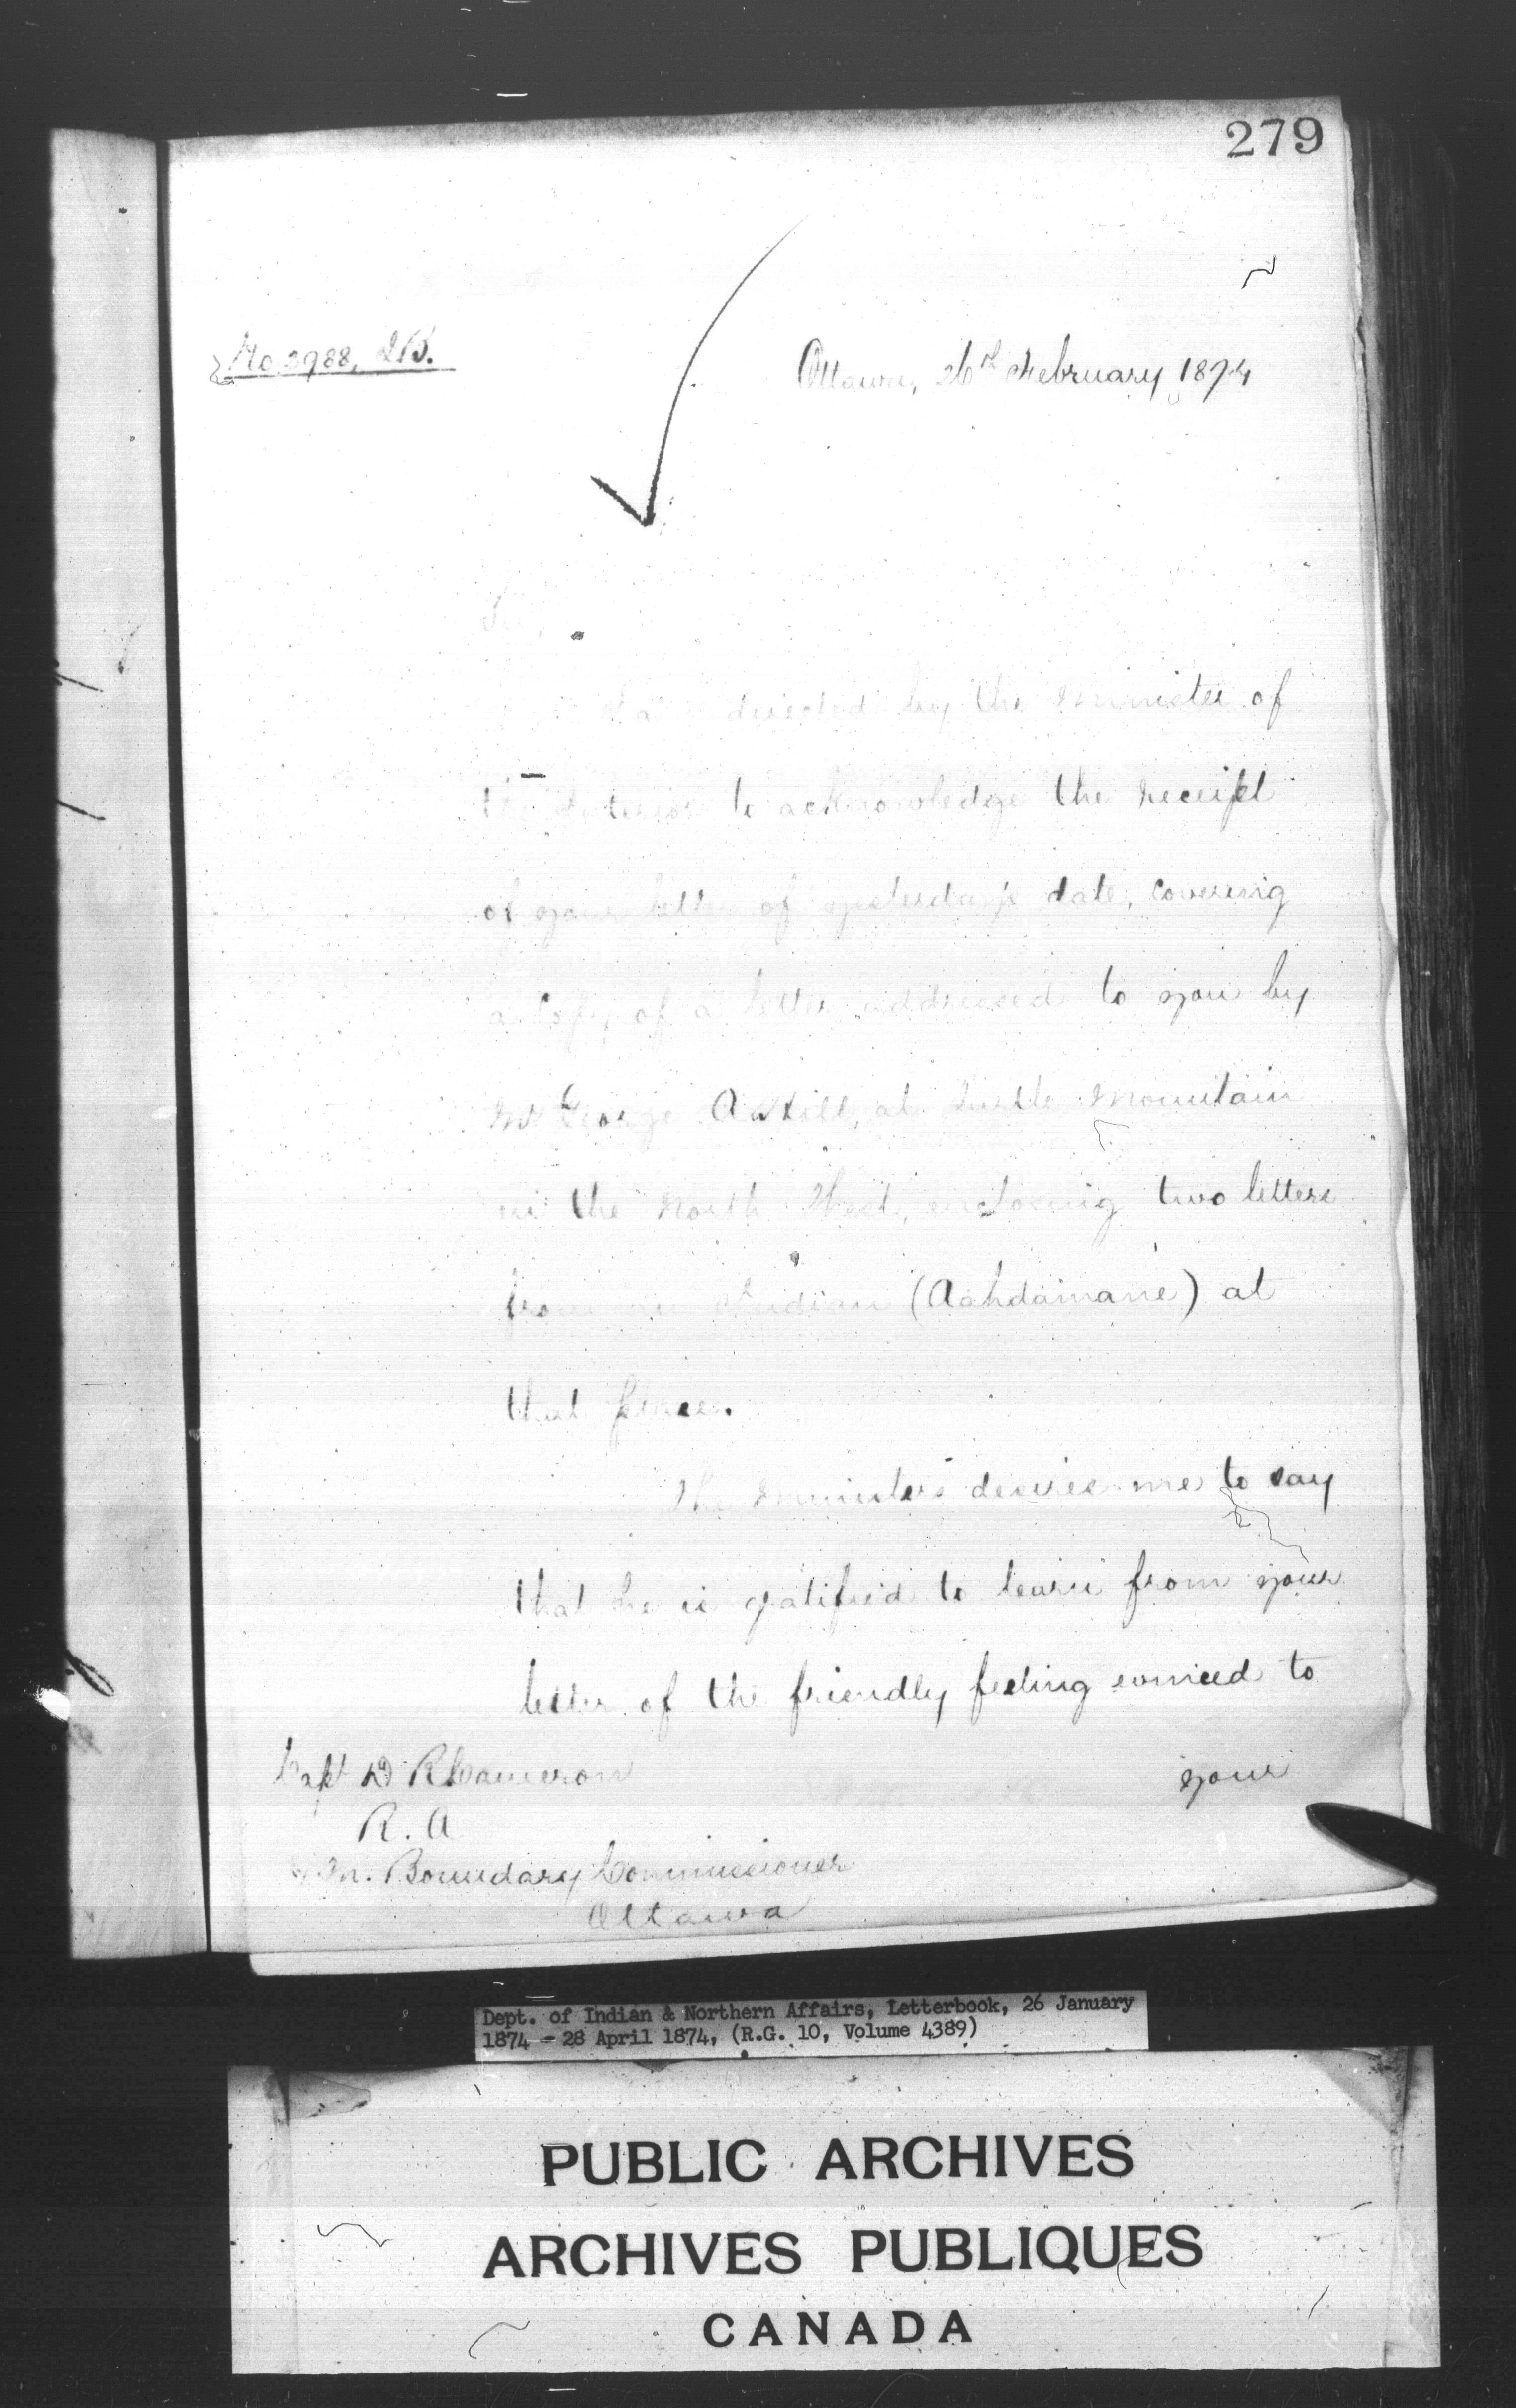 279
No. 2988, I.B.
Ottawa, 26th February 1874
Sir,
I am directed by the Minister of
the Interior to acknowledge the receipt
of your letter of yesterday's date, covering
a Copy of a letter addressed to you by
Mr George A Hill, at Turtle Mountain
in the North West, enclosing two letters
from an Indian (Aahdamane) at
that place.
The Minister desires me to say
that he is gratified to learn from your
letter of the friendly feeling evinced to
your
Capt D R Cameron
R. A
Boundary Commissioner
Ottawa
Dept. of Indian & Northern Affairs, Letterbook, 26 January
1874 - 28 April 1874, (R.G. 10, Volume 4389)
PUBLIC ARCHIVES
ARCHIVES PUBLIQUES
CANADA